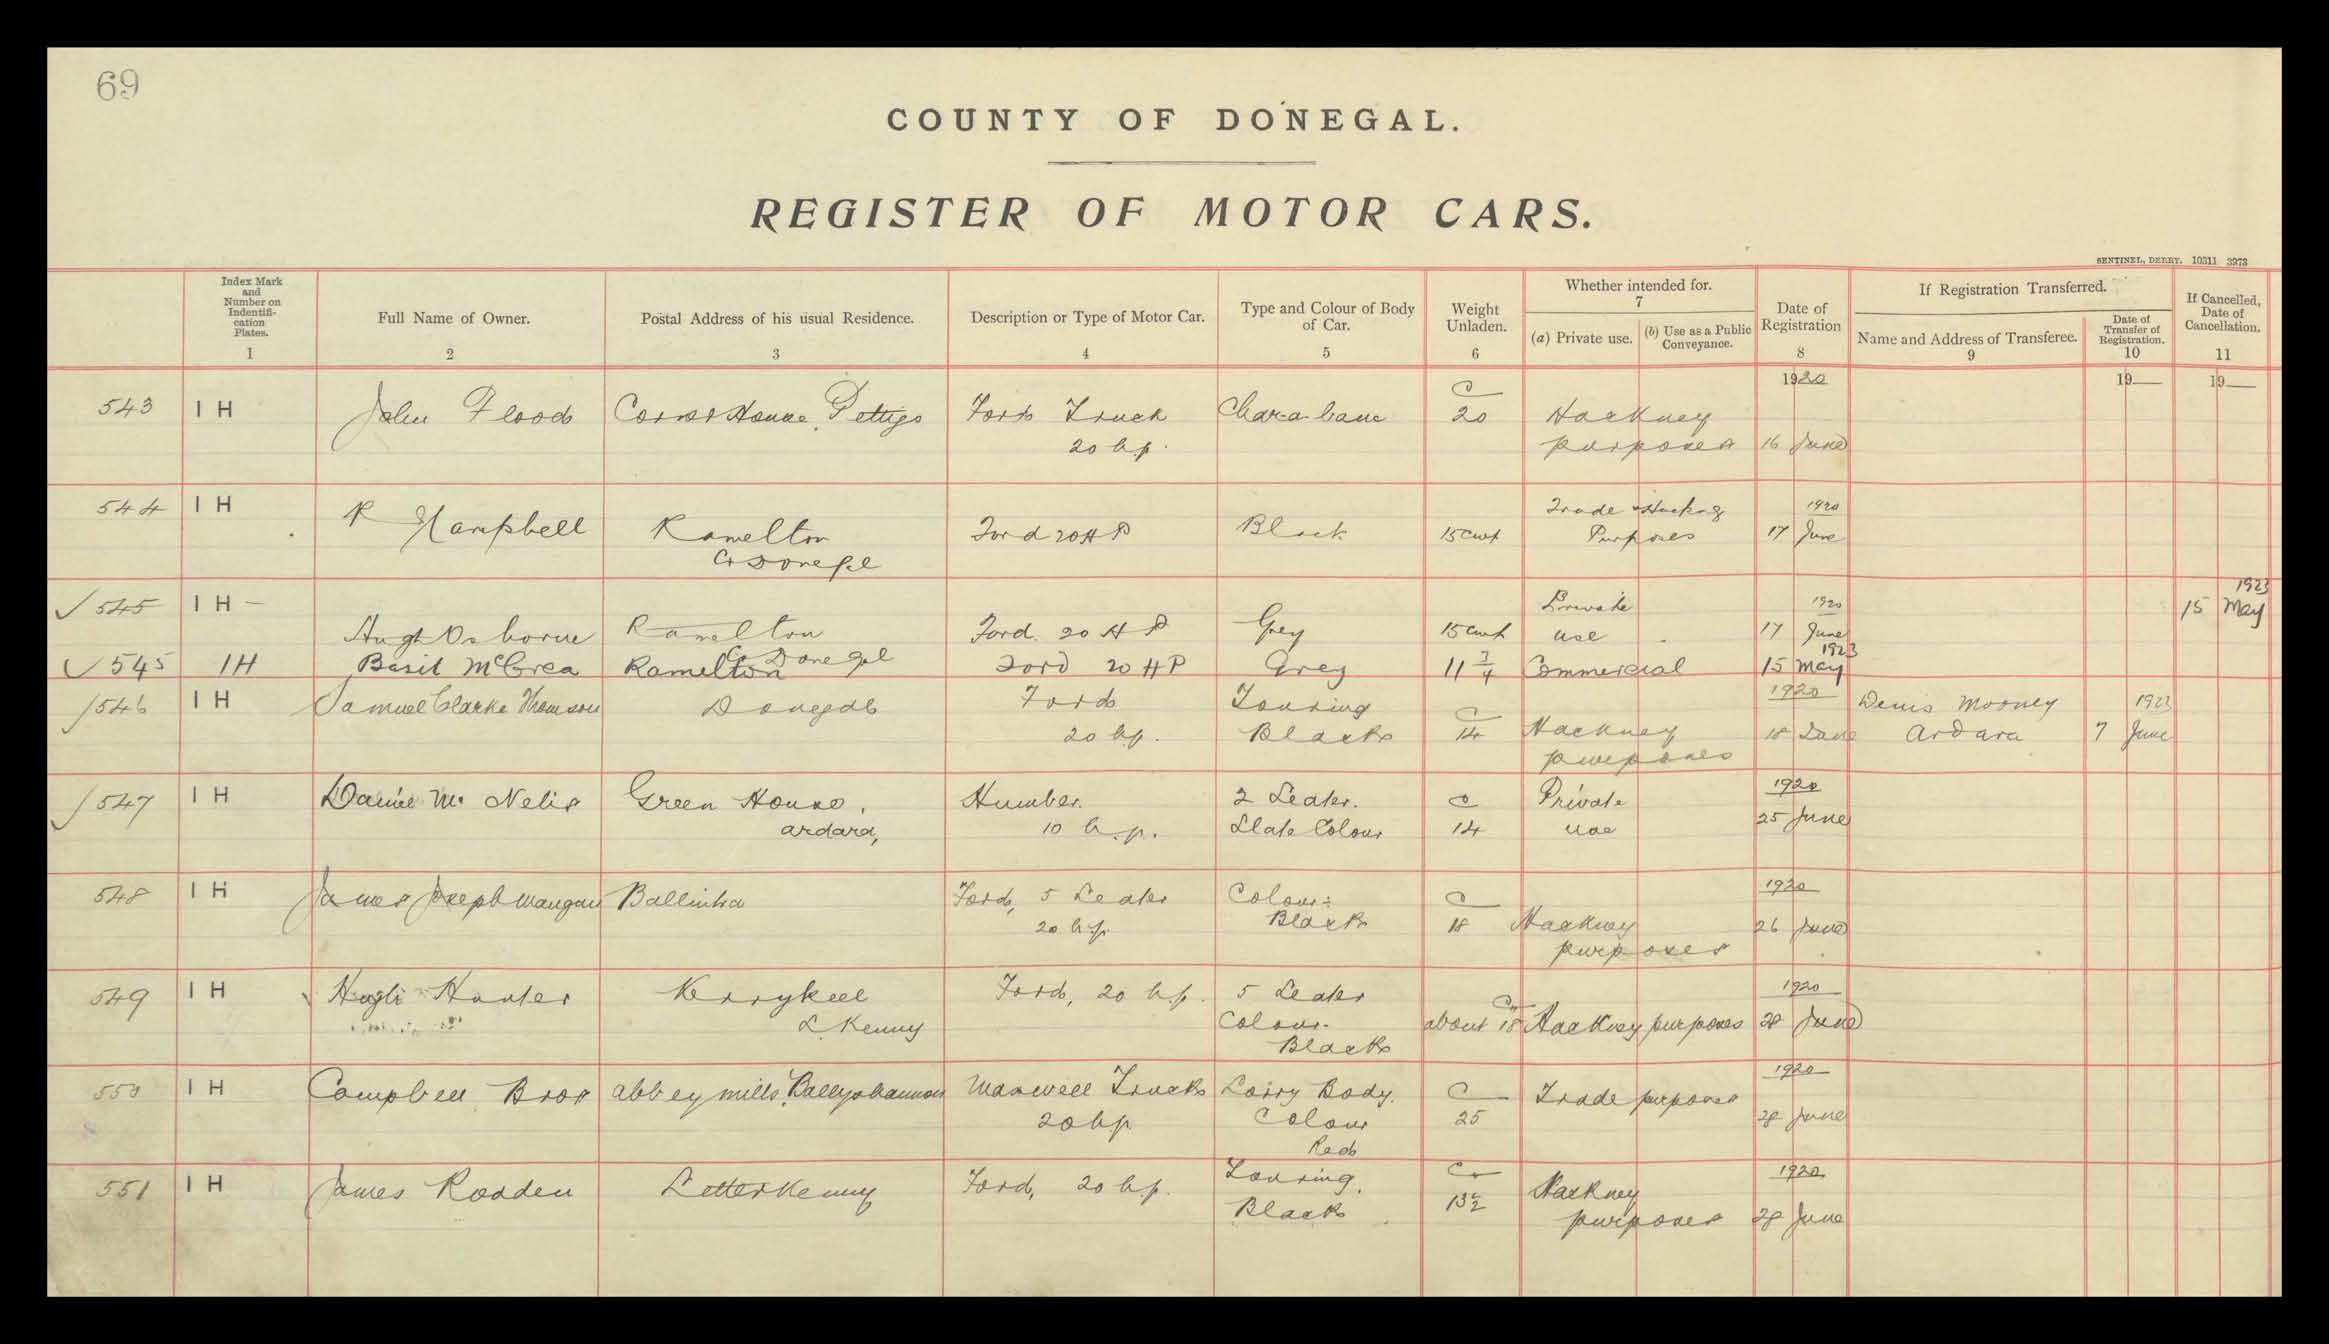 69
COUNTY OF DONEGAL.
REGISTER OF MOTOR CARS.
SENTINEL, DERRY. 10311 3973
Index Mark and Number on Indentifi-cation Plates. 1
Full Name of Owner. 2
Postal Address of his usual Residence. 3
Description or Type of Motor Car. 4
Type and Colour of Body of Car. 5
Weight Unladen. 6
Whether intended for. 7
(a) Private use.
(b) Use as a Public Conveyance.
Date of Registration 8
If Registration Transferred.
Name and Address of Transferee. 9
Date of Transfer of Registration. 10
If Cancelled, Date of Cancellation. 11
1920 19 19
543 I H John Flood House, Pettigo Ford Truck Char-a-banc C 20 Hackney
20 h.p. purposes 16 June
544 I H R Campbell Ramelton Ford 20 HP Black 15 cwt Trade & Hackney 1920
Co Donegal Purposes 17 June
545 I H Hugh Osborne Ramelton Ford. 20 HP Grey 15 cwt Private 1920 1923
Co Donegal use 17 June 15 May
545 IH Basil McCrea Ramelton Ford 20 HP Grey 11 3/4 Commercial 1923
15 May
546 I H Samuel Clarke Thomson Donegal Ford Touring C 1920 Denis Mooney 1923
20 h.p. Black 14 Hackney 18 June Ardara 7 June
purposes
547 I H Daniel Mc Nelis Green House, Humber. 2 Seater. C Private 1920
Ardara, 10 h.p. Slate Colour 14 use 25 June
548 I H James Joseph Mangan Ballintra Ford, 5 Seater Colour: C 1920
20 h.p. Black 18 Hackney 26 June
purposes
549 I H Hugh Hunter Kerrykeel Ford, 20 h.p. 5 Seater C 1920
L.Kenny Colour. about 18 Hackney purposes 28 June
Black
550 I H Campbell Bros Abbey mills, Ballyshannon Maxwell Truck Lorry Body. C Trade purposes 1920
20 h.p. Colour 25 28 June
Red
551 I H James Rodden Letterkenny Ford, 20 h.p. Touring. C Hackney 1920
Black 13½ purposes 28 June